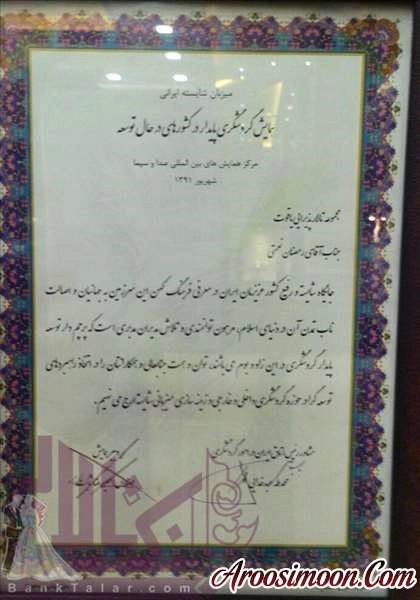 میزبان شایسته ایرانی
همایش گردشگری پایدار در کشورهای در حال توسعه
مرکز همایش های بین المللی صدا و سیما
شهریور ۱۳۹۱
مجموعه تالار پذیرایی یاقوت
جناب آقای رمضان نعمتی
جایگاه شایسته و رفیع کشور عزیزمان ایران در معرفی فرهنگ کهن این سرزمین به جهانیان و اصالت
ناب تمدن آن در دنیای اسلام، مرهون توانمندی و تلاش مدیران مدبری است که پرچم دار توسعه
پایدار گردشگری در این زاد و بوم می باشند. توان و همت جنابعالی و همکارانتان را در اتخاذ راهبردهای
توسعه گرا در حوزه گردشگری داخلی و خارجی و زمینه سازی میزبانی شایسته ارج می نهیم.
مشاور رئیس اتاق ایران در امور گردشگری
دبیر همایش
BankTalar.com
Aroosimoon.Com